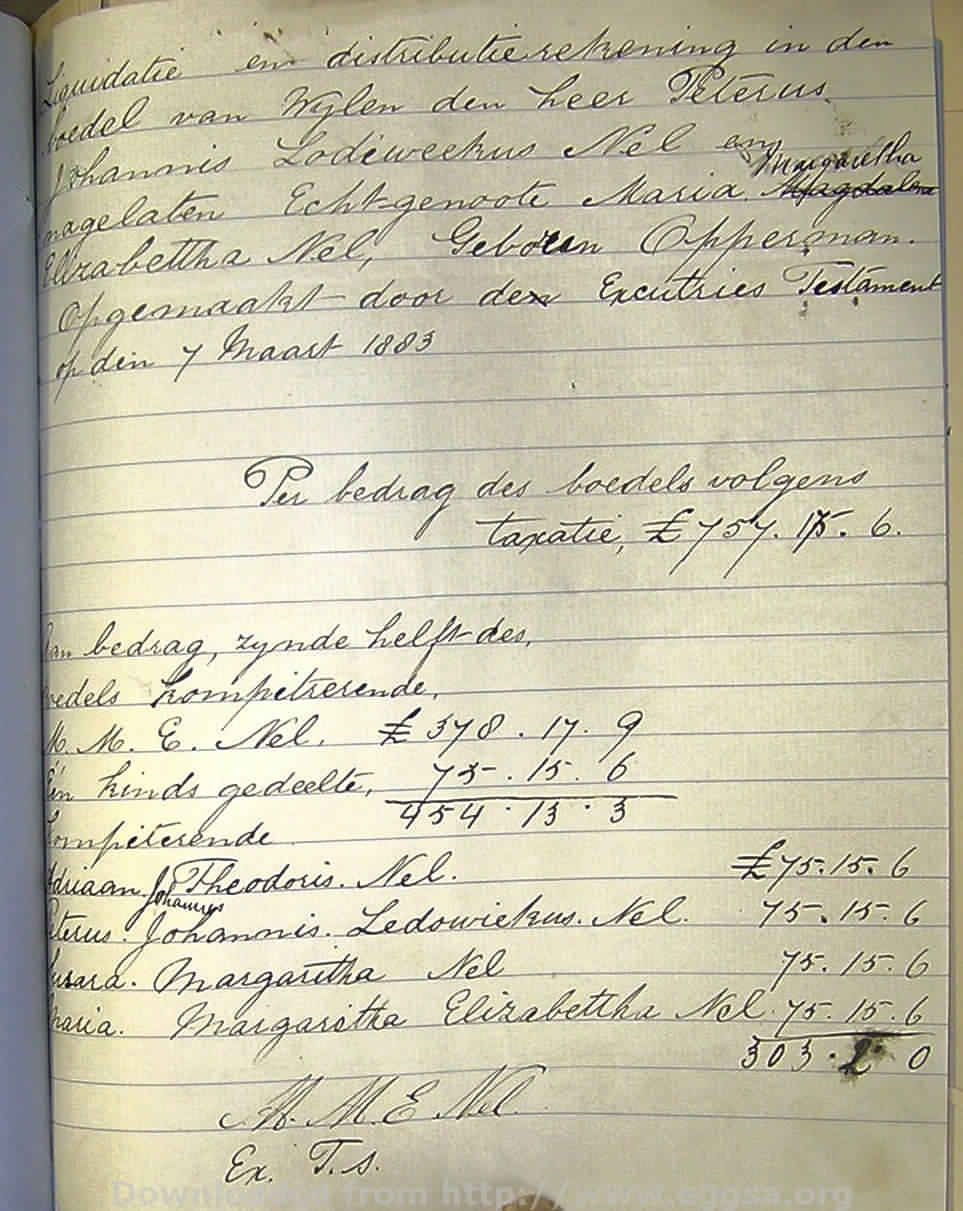 Liquidatie en distributierekening in den
boedel van Wylen den heer Peterus
Johannis Lodeweekus Nel en
nagelaten Echt-genoote Maria Margaretha Magdalena
Elizabettha Nel, Geboren Opperman.
Opgemaakt door den Excutries Testament
op den 7 Maart 1883
Per bedrag des boedels volgens
taxatie, £757. 15. 6.
Aan bedrag, zynde helft des,
boedels kompitrerende,
M. M. E. Nel. £378. 17. 9
Eén kinds gedeelte, 75. 15. 6
454. 13. 3
Kompiterende
Adriaan. Johannes Theodoris. Nel. £75. 15. 6
Peterus. Johannis. Ledowiekus. Nel. 75. 15. 6
Margaritha Nel 75. 15. 6
Maria. Margaretha Elizabettha Nel. 75. 15. 6
303. 2. 0
M. M. E Nel.
Ex. T.s.
Downloaded from http://www.eggsa.org